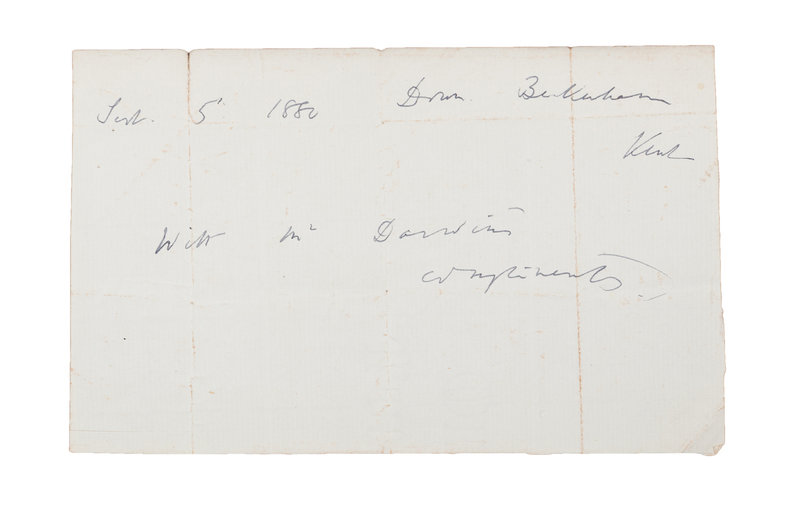 Sept. 5' 1880 Down Beckenham
Kent
With Mr Darwin's
compliments.